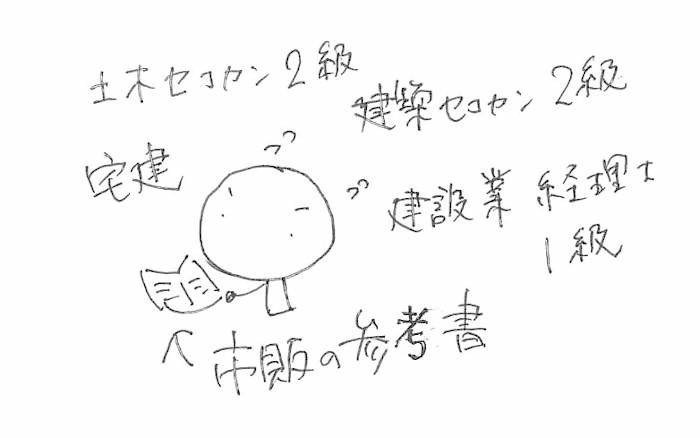 土木セコカン2級
建築セコカン2級
宅建
建設業経理士
1級
市販の参考書